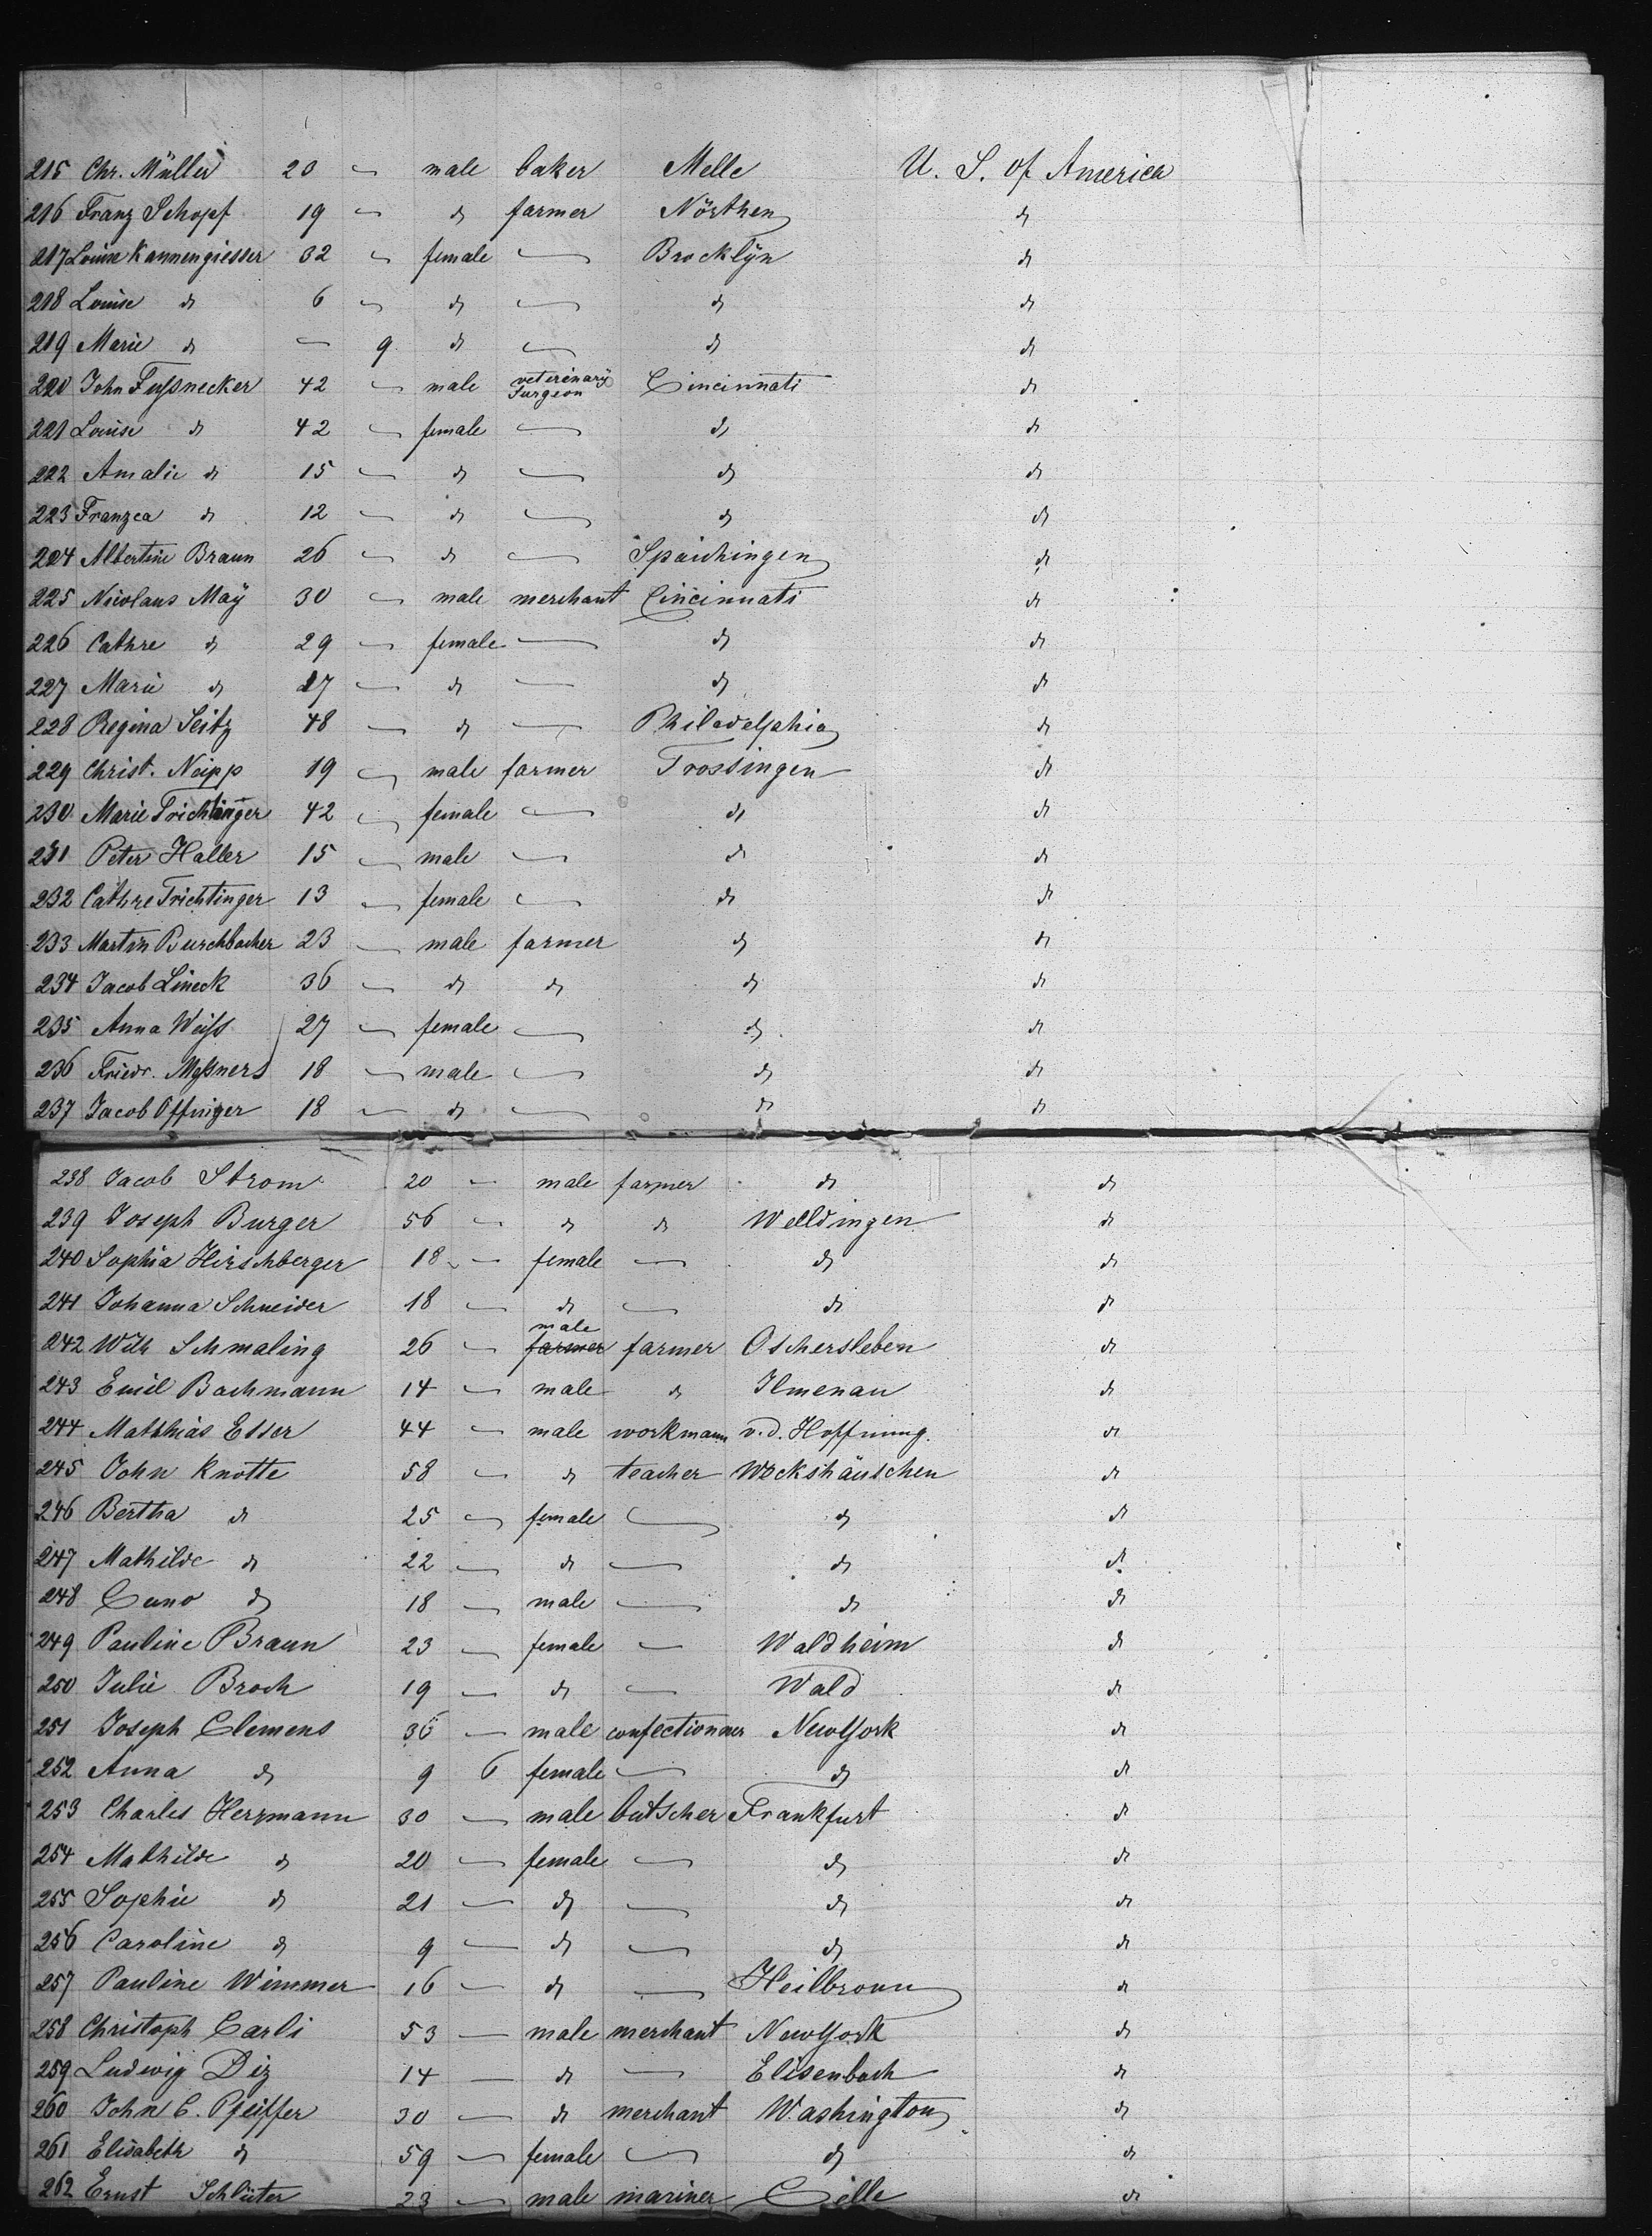 215 Chr. Müller 20 — male baker Melle U. S. of America
216 Franz Schopf 19 — do farmer Nörthen do
217 Louise Kannengiesser 32 — female — Brocklyn do
218 Louise do 6 — do — do do
219 Marie do — 9 do — do do
220 John Fußnecker 42 — male veterinary Surgeon Cincinnati do
221 Louise do 42 — female — do do
222 Amalie do 15 — do — do do
223 Franzca do 12 — do — do do
224 Albertine Braun 26 — do — Spaichingen do
225 Nicolaus Maÿ 30 — male merchant Cincinnati do
226 Cathre do 29 — female — do do
227 Marie do 27 — do — do do
228 Regina Seitz 48 — do — Philadelphia do
229 Christ. Neipp 19 — male farmer Trossingen do
230 Marie Trichtinger 42 — female — do do
231 Peter Haller 15 — male — do do
232 Cathre Trichtinger 13 — female — do do
233 Martin Burchbacher 23 — male farmer do do
234 Jacob Lineck 36 — do do do do
235 Anna Weiß 27 — female — do do
236 Friedr. Meßners 18 — male — do do
237 Jacob Offinger 18 — do — do do
238 Jacob Strom 20 — male farmer do do
239 Joseph Burger 56 — do do Welldingen do
240 Sophia Hirschberger 18 — female — do do
241 Johanna Schneider 18 — do — do do
242 Wilh Schmaling 26 — farmer male farmer Oschersleben do
243 Emil Bachmann 14 — male do Ilmenau do
244 Matthias Esser 44 — male workmann v.d. Hoffnung. do
245 John Knotte 58 — do teacher Wockshäuschen do
246 Bertha do 25 — female — do do
247 Mathilde do 22 — do — do do
248 Cuno do 18 — male — do do
249 Pauline Braun 23 — female — Waldheim do
250 Julie Broch 19 — do — Wald do
251 Joseph Clemens 36 — male confectionner NewYork do
252 Anna do 9 6 female — do do
253 Charles Herrmann 30 — male butscher Frankfurt do
254 Mathilde do 20 — female — do do
255 Sophie do 21 — do — do do
256 Caroline do 9 — do — do do
257 Pauline Wimmer 16 — do — Heilbronn do
258 Christoph Carli 53 — male merchant NewYork do
259 Ludewig Diz 14 — do — Elisenbach do
260 John C. Pfeiffer 30 — do merchant Washington do
261 Elisabeth do 59 — female — do do
262 Ernst Schlüter 23 — male mariner Celle do